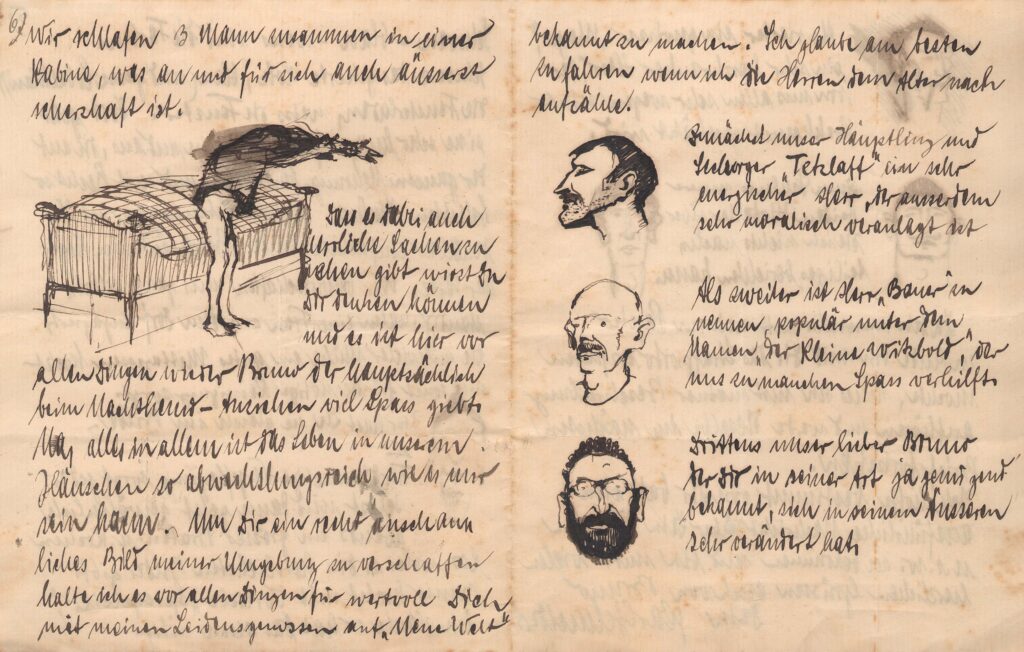 6)
Wir schlafen 3 Mann zusammen in einer
Kabine, was an und für sich auch äusserst
scherzhaft ist.
Dass es dabei auch
herrliche Sachen zu
sehen gibt wirst Du
Dir denken können
und es ist hier vor
allen Dingen wieder Bruno der hauptsächlich
beim Nachthemd-Anziehen viel Spass giebt.
Na, alles in allem ist das Leben in unserem
Häuschen so abwechslungsreich wie es nur
sein kann. Um Dir ein recht anschau
liches Bild meiner Umgebung zu verschaffen
halte ich es vor allen Dingen für wertvoll Dich
mit meinen Leidensgenossen auf „Neue Welt"
bekannt zu machen. Ich glaube am besten
zu fahren wenn ich die Herren dem Alter nach
aufzähle.
Zunächst unser Häuptling und
Seelsorger "Tetzlaff" ein sehr
energischer Herr, der ausserdem
sehr moralisch veranlagt ist
Als zweiter ist Herr „Bauer" zu
nennen, populär unter dem
Namen „der kleine Witzbold", der
uns zu manchen Spass verhilft.
Drittens unser lieber Bruno
der Dir in seiner Art ja genügend
bekannt, sich in seinem Äusseren
sehr verändert hat.